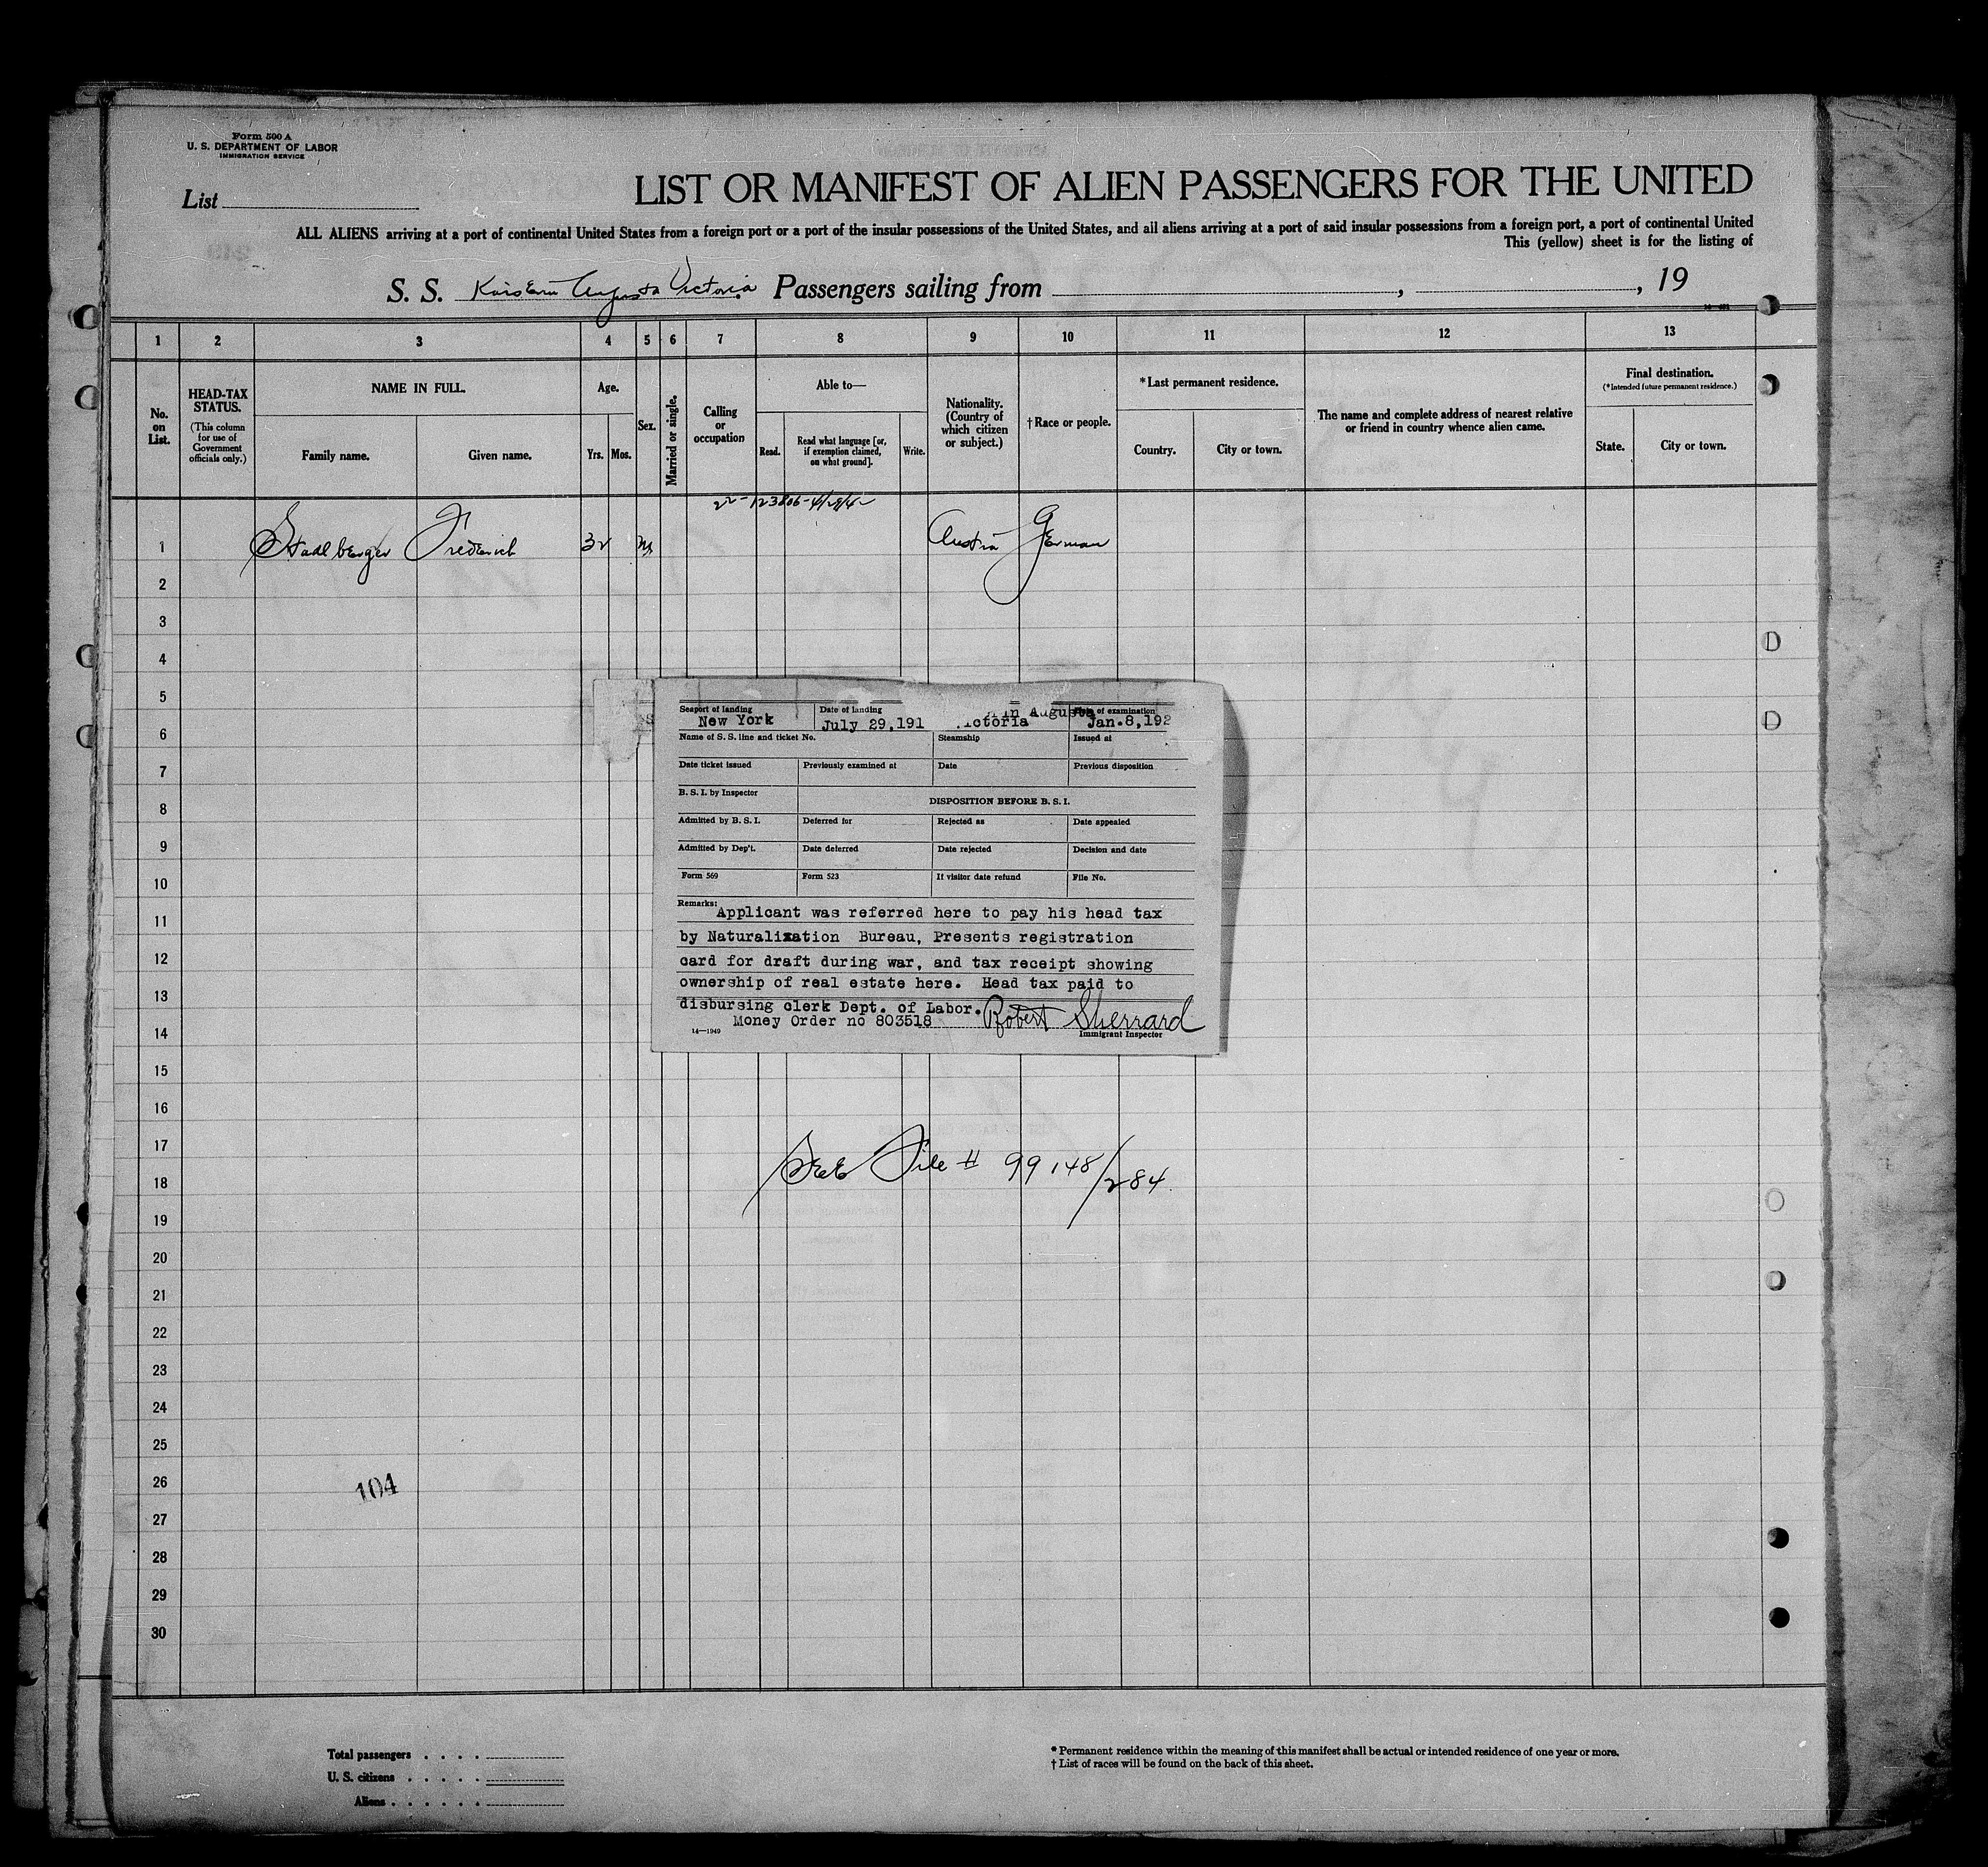 Form 500 A
U. S. DEPARTMENT OF LABOR
IMMIGRATION SERVICE
List
LIST OR MANIFEST OF ALIEN PASSENGERS FOR THE UNITED
ALL ALIENS arriving at a port of continental United States from a foreign port or a port of the insular possessions of the United States, and all aliens arriving at a port of said insular possessions from a foreign port, a port of continental United
This (yellow) sheet is for the listing of
S. S. Kaiserin Augusta Victoria Passengers sailing from , , 19
1 2 3 4 5 6 7 8 9 10 11 12 13
No. on List.
HEAD-TAX STATUS.
(This column for use of Government officials only.)
NAME IN FULL.
Family name. Given name.
Age.
Yrs. Mos.
Sex.
Married or single.
Calling or occupation
Able to—
Read. Read what language [or, if exemption claimed, on what ground]. Write.
Nationality. (Country of which citizen or subject.)
†Race or people.
*Last permanent residence.
Country. City or town.
The name and complete address of nearest relative or friend in country whence alien came.
Final destination.
(*Intended future permanent residence.)
State. City or town.
22-123806-4/28/42
1 Stadlberger Frederick 32 M Austria German
2
3
4
5
6
7
8
9
10
11
12
13
14
15
16
17
18
19
20
21
22
23
24
25
26
27
28
29
30
Seaport of landing Date of landing Date of examination
New York July 29,191 in Augusta Victoria Jan.8,192
Name of S. S. line and ticket No. Steamship Issued at
Date ticket issued Previously examined at Date Previous disposition
B. S. I. by Inspector DISPOSITION BEFORE B. S. I.
Admitted by B. S. I. Deferred for Rejected as Date appealed
Admitted by Dep't. Date deferred Date rejected Decision and date
Form 569 Form 523 If visitor date refund File No.
Remarks: Applicant was referred here to pay his head tax
by Naturalization Bureau, Presents registration
card for draft during war, and tax receipt showing
ownership of real estate here. Head tax paid to
disbursing clerk Dept. of Labor. Robert Sherrard
Money Order no 803518
14—1949 Immigrant Inspector
See File # 99148/284
104
Total passengers . . . .
U. S. citizens . . . . .
Aliens . . . . . .
* Permanent residence within the meaning of this manifest shall be actual or intended residence of one year or more.
† List of races will be found on the back of this sheet.